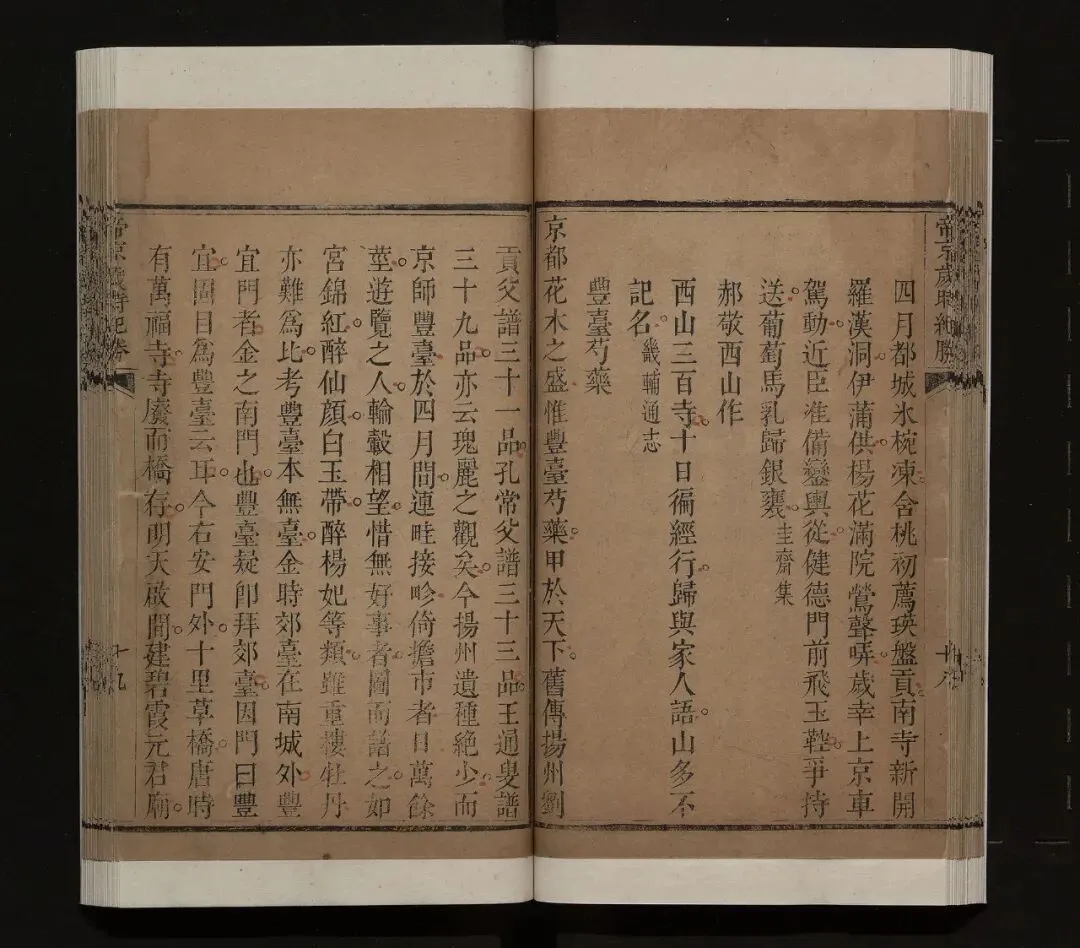 帝京歲時紀勝
十八
四月都城氷椀凍含桃初薦瑛盤貢南寺新開
羅漢洞伊蒲供楊花滿院鶯聲哢歲幸上京車
駕動近臣准備鑾輿從健德門前飛玉鞚爭持
送葡萄馬乳歸銀甕圭齋集
郝敬西山作
西山三百寺十日徧經行歸與家人語山多不
記名畿輔通志
豐臺芍藥
京都花木之盛惟豐臺芍藥甲於天下舊傳揚州劉
貢父譜三十一品孔常父譜三十三品王通叟譜
三十九品亦云瑰麗之觀矣今揚州遺種絶少而
京師豐臺於四月間連畦接畛倚擔市者日萬餘
莖遊覽之人輪轂相望惜無好事者圖而譜之如
宮錦紅醉仙顏白玉帶醉楊妃等類雖重樓牡丹
亦難爲比考豐臺本無臺金時郊臺在南城外豐
宜門者金之南門也豐臺疑卽拜郊臺因門曰豐
宜固目爲豐臺云耳今右安門外十里草橋唐時
有萬福寺寺廢而橋存明天啟間建碧霞元君廟
帝京歲時紀勝
十九